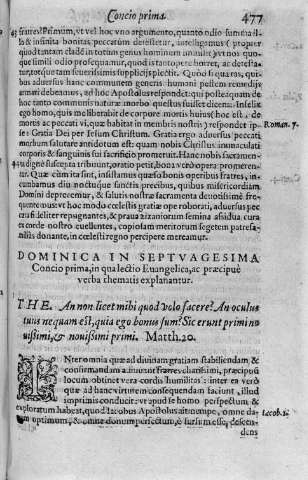 Concio prima. 477
fratres! Primum, vt vel hoc vno argumento, quanto odio summa il-
la & infinita bonitas peccatum detestetur, intelligamus (propter
quod tantam cladem in totum genus hominum inuadere) vt nos quo-
que simili odio prosequamur, quod is tantopere horret, ac detesta-
tur, tot què tam seuerissimis supplicijs plectit. Quòd si quæras, qui-
bus aduersus hanc communem generis humani pestem remedijs
armari debeamus, ad hoc Apostolus respondet: qui postea quam de
hoc tanto communis naturæ morbo questus fuisset dicens. Infelix
ego homo, quis me liberabit de corpore mortis huius (hoc est, de
mortis ac peccati vi, quæ habitat in membris nostris) respondet ip-
se: Gratia Dei per Iesum Christum. Gratia ergo aduersus peccati
Roman. 7.
morbum salutare antidotum est: quam nobis Christus immaculati
corporis & sanguinis sui sacrificio promeruit. Hanc nobis sacramen-
ta dignè suscepta tribuunt, oratio petit, bona verò opera promeren-
tur. Quæ cùm ita sint, insistamus quæso bonis operibus fratres, in-
cumbamus diu noctuque sanctis precibus, quibus misericordiam
Domini deprecemur, & salutis nostræ sacramenta deuotissimè fre-
quentemus: vt hoc modo cælestis gratiæ ope roborati, aduersus pec-
cati fideliter repugnantes, & praua zizaniorum semina assidua cura
ex corde nostro euellentes, copiosam meritorum segetem patresa-
miliâs donante, in cœlesti regno percipere mereamur.
DOMINICA IN SEPTVAGESIMA
Concio prima, in qua lectio Euangelica, ac præcipuè
verba thematis explanantur.
THE. An non licet mihi quod volo facere? An oculus
tuus nequam est, quia ego bonus sum? Sic erunt primi no
uissimi, & nouissimi primi. Matth. 20.
INter omnia quæ ad diuinam gratiam stabiliendam &
confirmandam adiuuant fratres charissimi, præcipuū
locum obtinet vera cordis humilitas: inter ea verò
quæ ad hanc virtutem consequendam faciunt, illud
imprimis conducit: vt apud se homo perspectum &
exploratum habeat, quod Iacobus Apostolus ait nempe, omne da-
Iacob. 1.
tum optimum, & omne donum perfectū, è sursū esse, descen-
dens